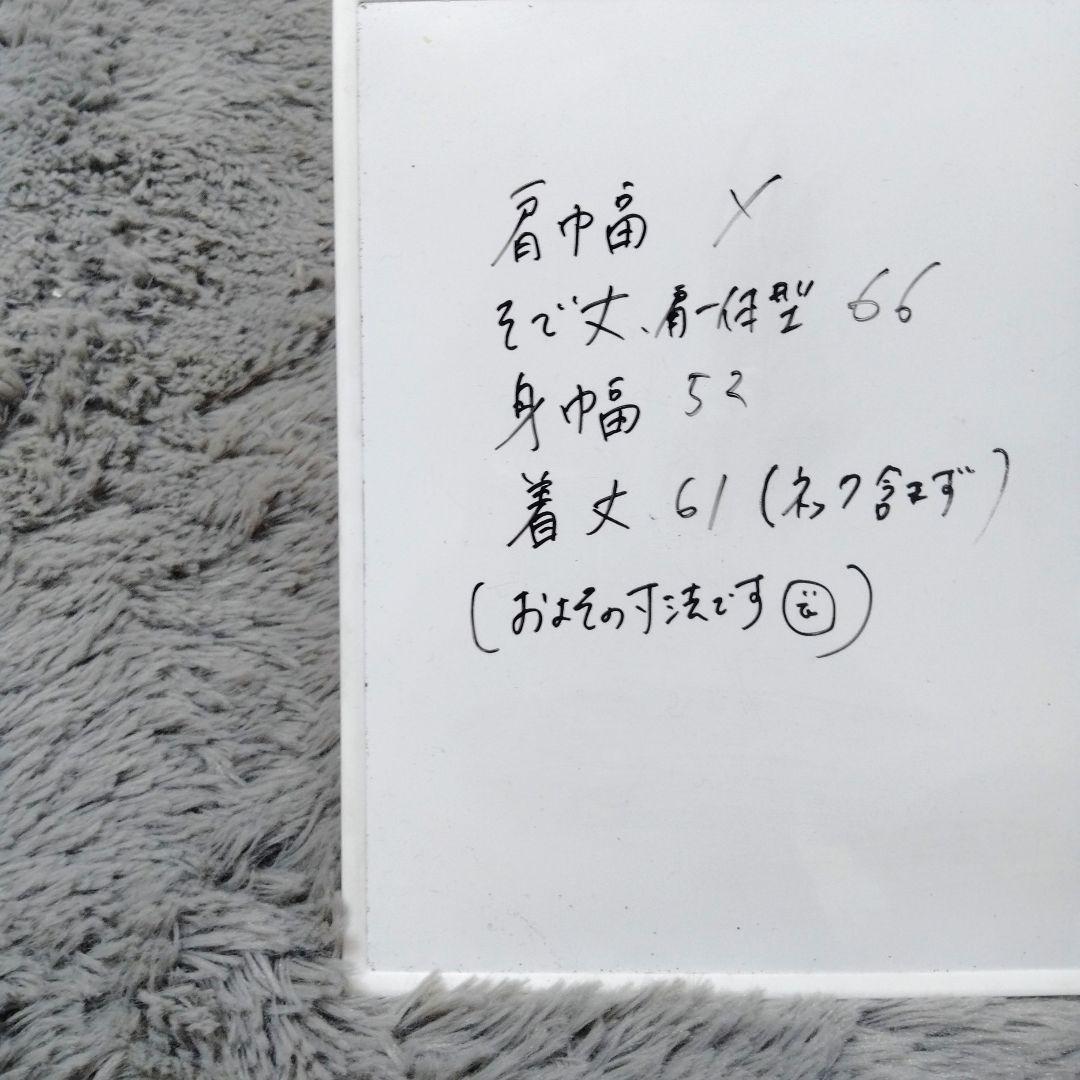 肩巾幅 ×
そで丈、肩一体型 66
身巾幅 52
着丈 61 (ネック含まず)
(およその寸法です)